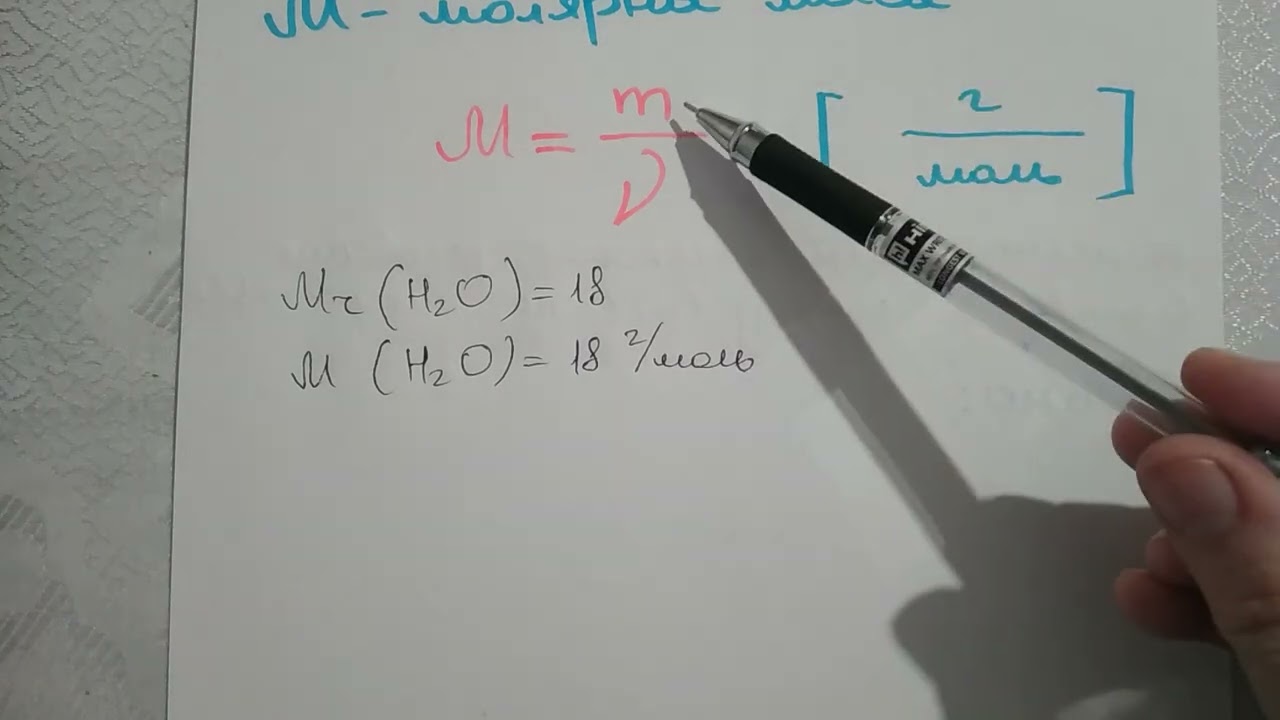 M - молярная масса
M = m/ν [г/моль]
Mr (H₂O) = 18
M (H₂O) = 18 г/моль
Hi
MAX WRI